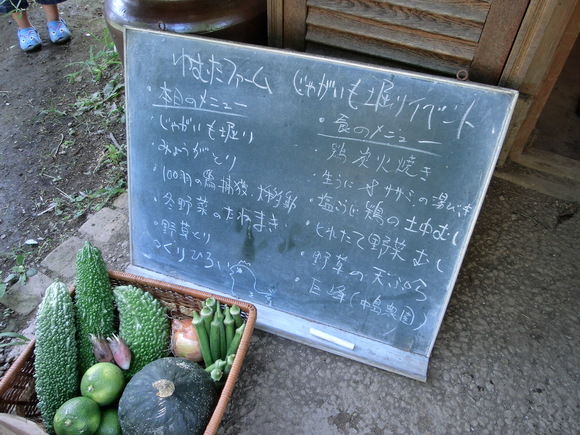 ゆむたファーム じゃがいも堀りイベント
・本日のメニュー
・じゃがいも堀り
・みょうがとり
・100羽の鶏捕獲、大移動
・冬野菜のたねまき
・野草とり
・くりひろい
・食のメニュー
・鶏炭火焼き
・生うに ササミの湯びき
・塩うに鶏の土中むし
・とれたて野菜むし
・野草の天ぷら
・巨峰(中島農園)